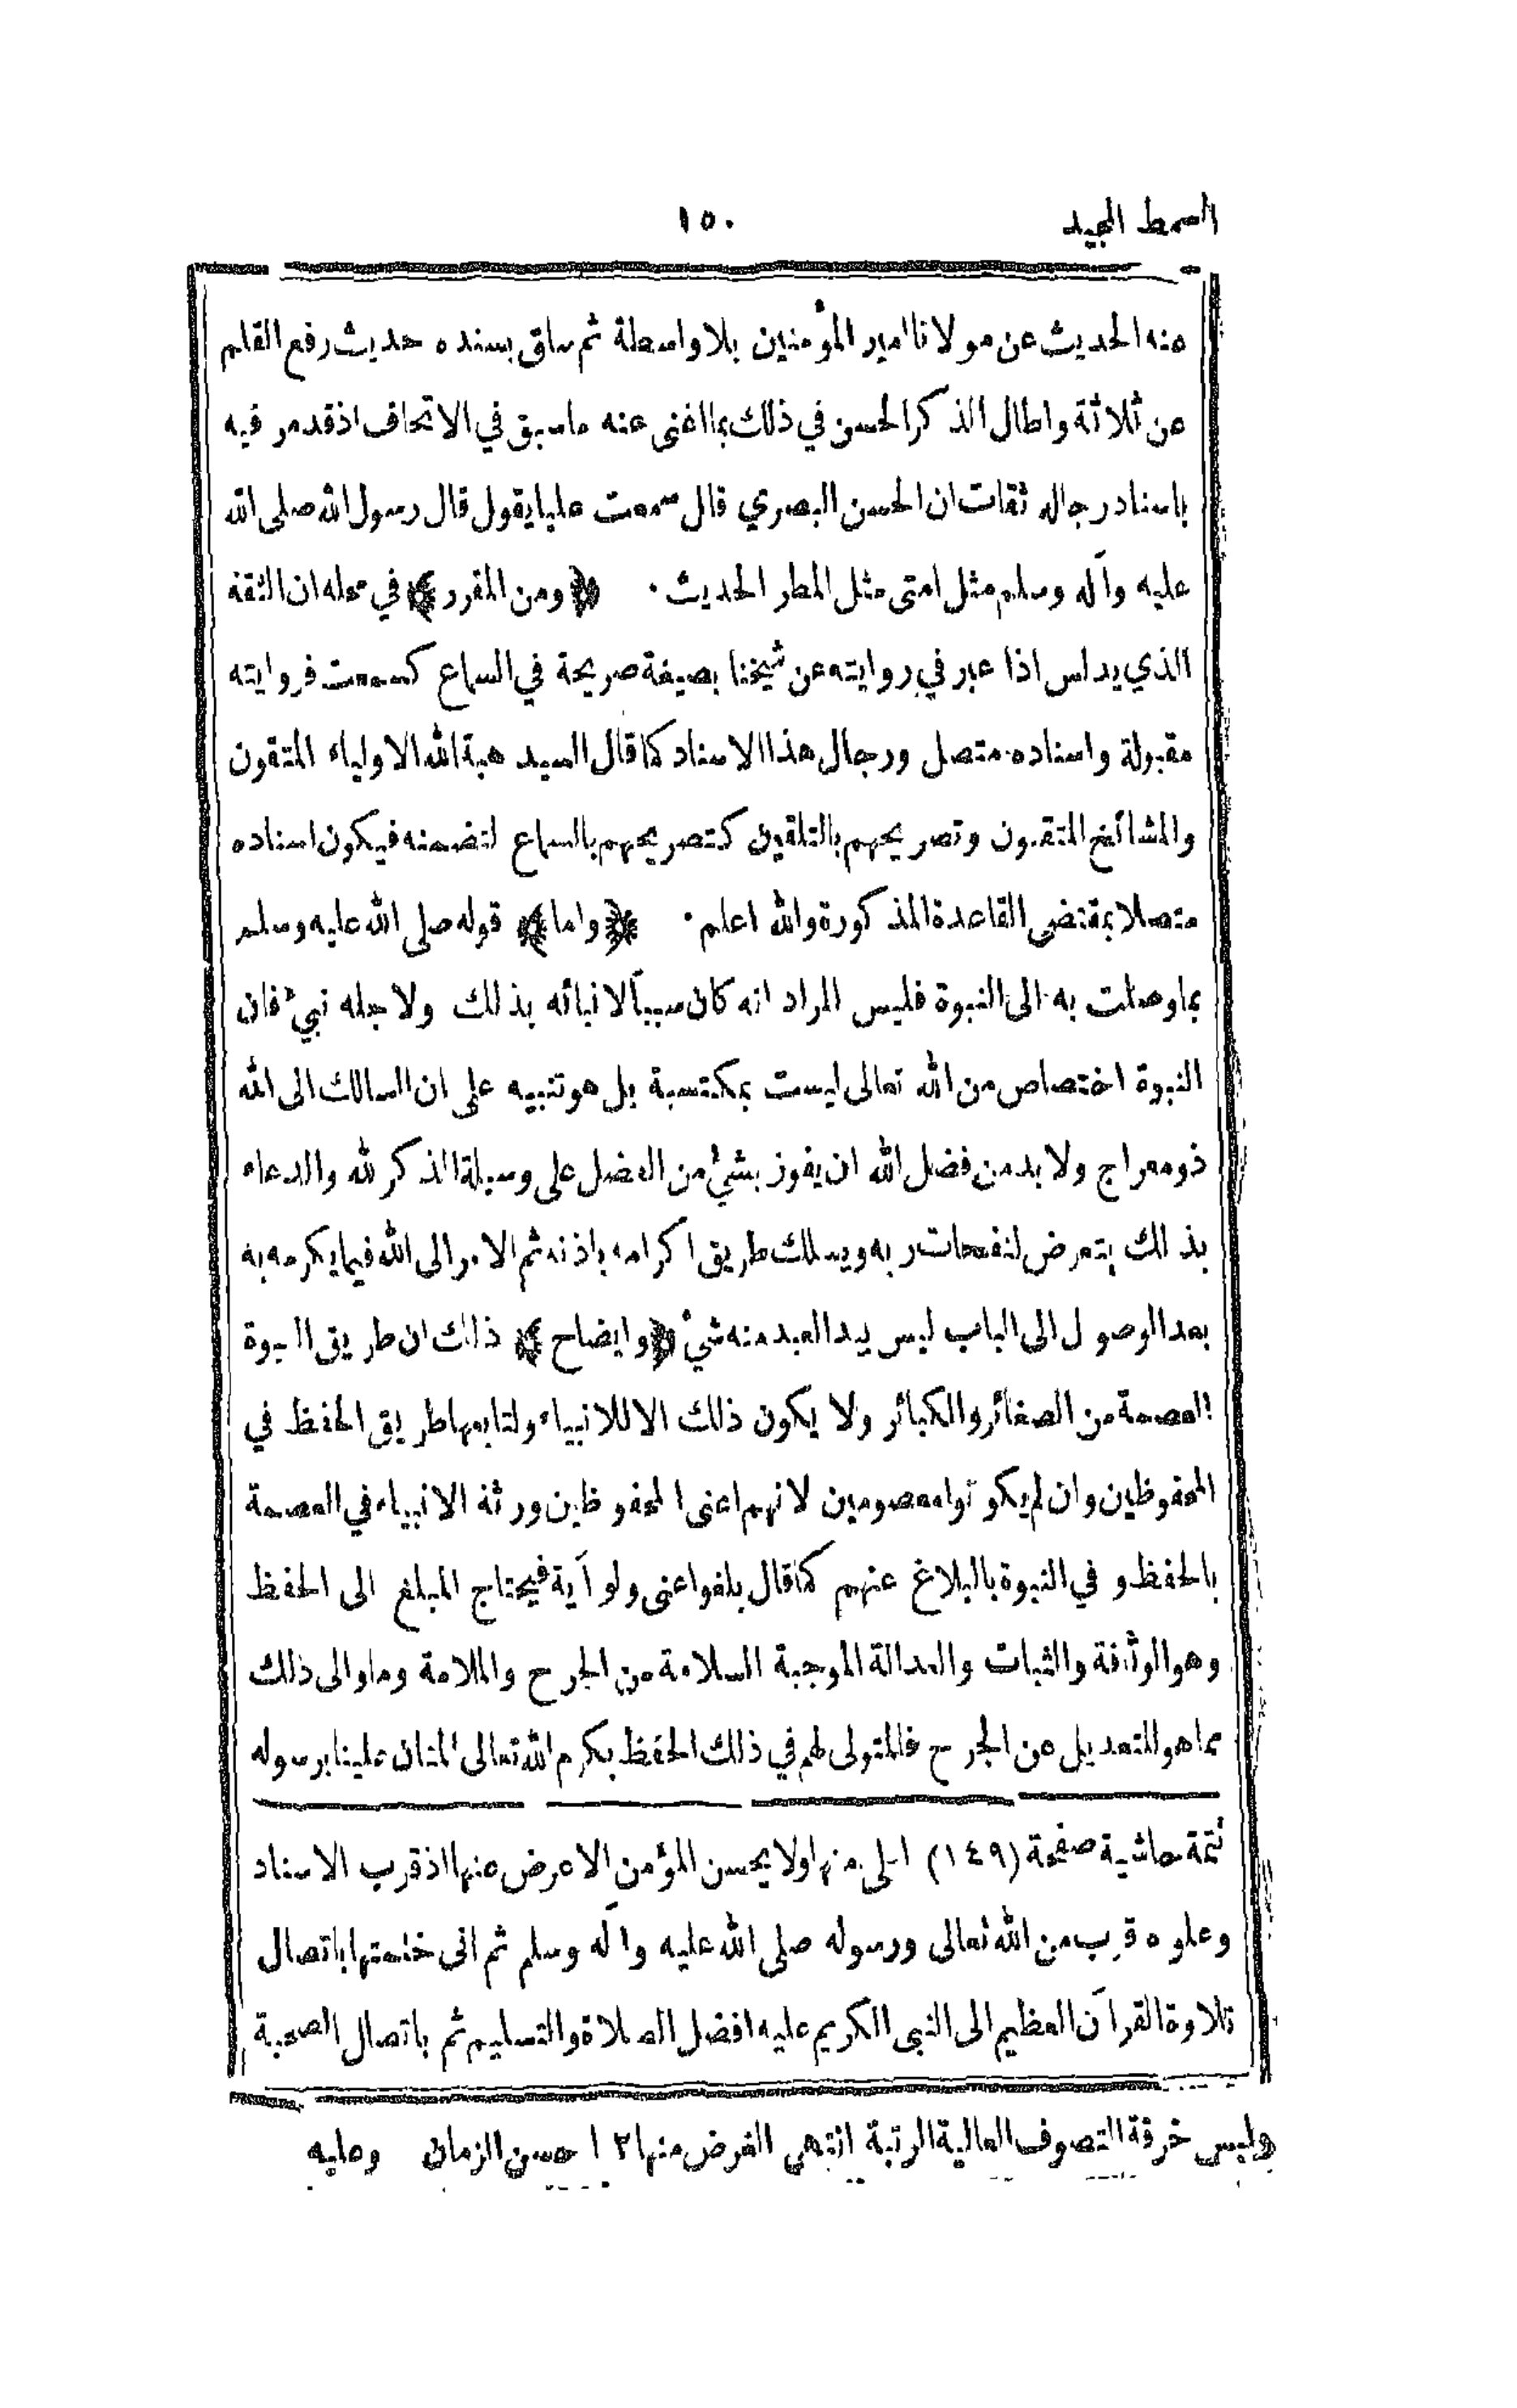 السمط المجيد
١٥٠
منه الحديث عن مولانا امير المؤمنين بلا واسطة ثم ساق بسنده حديث رفع القلم
عن ثلاثة واطال الذكر الحسن في ذلك بما اغنى عنه ماسبق في الاتحاف اذ قد مر فيه
باسناد رجاله ثقات ان الحسن البصري قال سمعت عليا يقول قال رسول الله صلى الله
عليه وآله وسلم مثل امتى مثل المطر الحديث . ﴿ ومن المقرر ﴾ في محله ان الثقة
الذي يدلس اذا عبر في روايته عن شيخنا بصيغة صريحة في السماع كسمعت فروايته
مقبولة واسناده متصل ورجال هذا الاسناد كما قال السيد هبة الله الاولياء المتقون
والمشائخ المتقنون وتصريحهم بالتلقين كتصريحهم بالسماع لتضمنه فيكون اسناده
متصلا بمقتضى القاعدة المذكورة والله اعلم . ﴿ واما ﴾ قوله صلى الله عليه وسلم
بما وصلت به الى النبوة فليس المراد انه كان سبباً لانبائه بذلك ولاجله نبئ فان
النبوة اختصاص من الله تعالى ليست بمكتسبة بل هو تنبيه على ان السالك الى الله
ذو معراج ولا بد من فضل الله ان يفوز بشئ من الفضل على وسيلة الذكر لله والدعاء
بذلك يتعرض لنفحات ربه ويسلك طريق اكرامه باذنه ثم الامر الى الله فيما يكرمه به
بعد الوصول الى الباب ليس بيد العبد منه شئ ﴿ وايضاح ﴾ ذلك ان طريق النبوة
العصمة من الصغائر والكبائر ولا يكون ذلك الا للانبياء ولتابعها طريق الحفظ في
المحفوظين وان لم يكونوا معصومين لانهم اعنى المحفوظين ورثة الانبياء في العصمة
بالحفظ وفي النبوة بالبلاغ عنهم كما قال بلغوا عنى ولو آية فيحتاج المبلغ الى الحفظ
وهو الوثاقة والثبات والعدالة الموجبة السلامة من الجرح والملامة وما والى ذلك
مما هو للتعديل عن الجرح فالمتولى لهم في ذلك الحفظ بكرم الله تعالى المنان علينا برسوله
تتمة حاشية صفحة (١٤٩) منها ولا يحسن المؤمن الاعرض عنها اذ قرب الاسناد
وعلوه قرب من الله تعالى ورسوله صلى الله عليه وآله وسلم ثم انى ختمتها باتصال
تلاوة القرآن العظيم الى النبى الكريم عليه افضل الصلاة والتسليم ثم باتصال الصحبة
ولبس خرقة التصوف العالية الرتبة انتهى الغرض منها ١٢ حسن الزمان وعليه